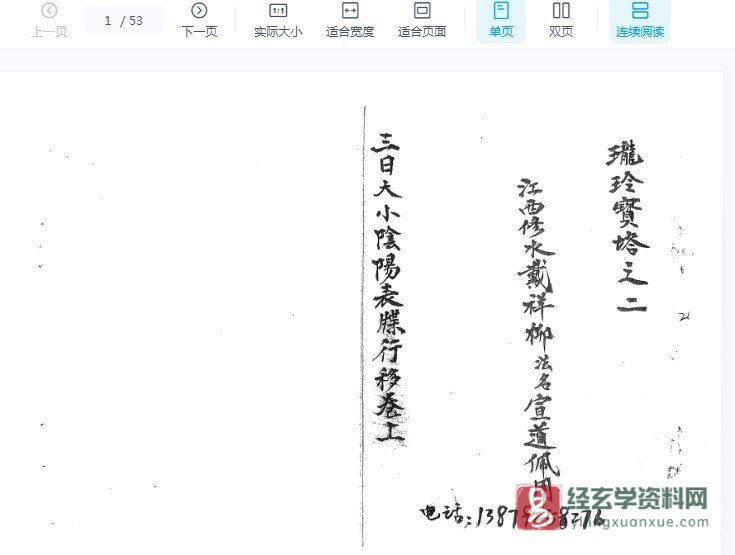 上一页
1 / 53
下一页
实际大小
适合宽度
适合页面
单页
双页
连续阅读
瓏玲寳塔之二
江西修水戴祥柳法名宣道佩用
电话：13879 8276
三日大小陰陽表牒行移卷上
经玄学资料网
jyingxuanxue.com